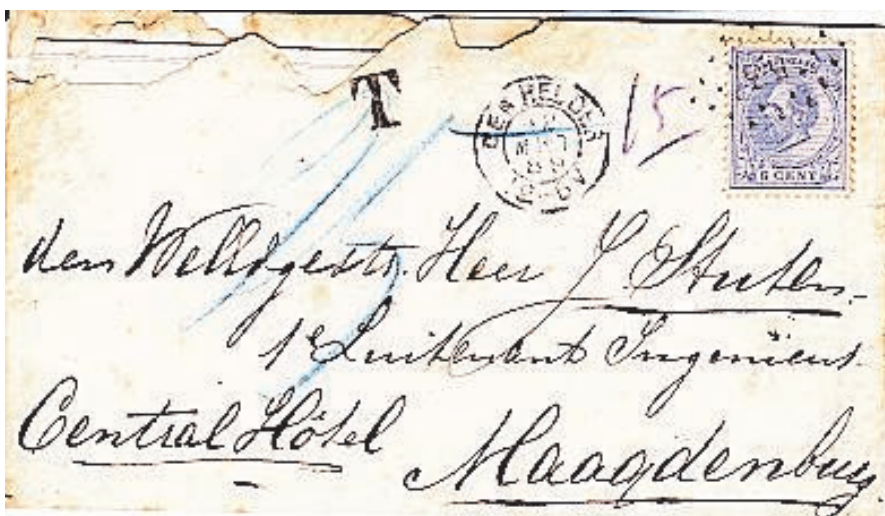 T
DEN HELDER
15
5 CENT
den WelEdgestr. Heer J. Stuten
1e Luitenant Ingenieur
Central Hôtel
Maagdenburg